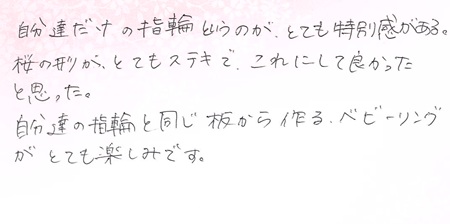 自分達だけの指輪というのが、とても特別感がある。
桜の形が、とてもステキで、これにして良かった
と思った。
自分達の指輪と同じ板から作る、ベビーリング
がとても楽しみです。